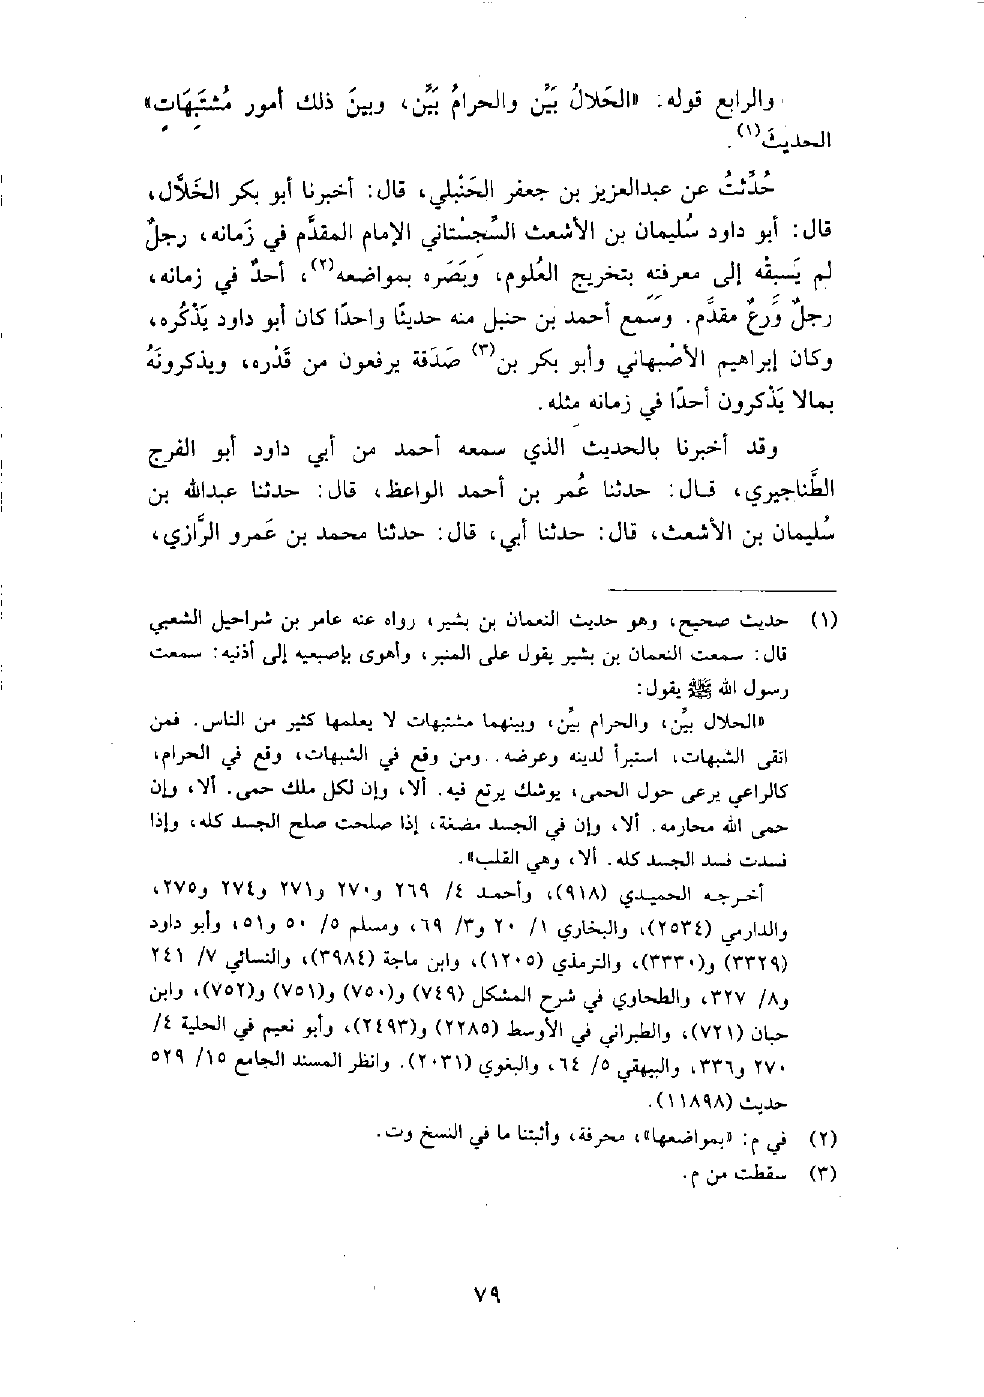 والرابع قوله: «الحَلالُ بَيِّن والحرامُ بَيِّن، وبينَ ذلك أمور مُشتَبِهَات»
الحديثَ(١).
حُدِّثتُ عن عبدالعزيز بن جعفر الحَنْبلي، قال: أخبرنا أبو بكر الخَلاَّل،
قال: أبو داود سُليمان بن الأشعث السِّجِستاني الإمام المقدَّم في زَمانه، رجلٌ
لم يَسبِقْه إلى معرفته بتخريج العُلوم، وبَصَره بمواضعه(٢)، أحدٌ في زمانه،
رجلٌ وَرِعٌ مقدَّم. وسَمِع أحمد بن حنبل منه حديثًا واحدًا كان أبو داود يَذْكُره،
وكان إبراهيم الأصْبهاني وأبو بكر بن(٣) صَدَقة يرفعون من قَدْره، ويذكرونَهُ
بمالا يَذْكرون أحدًا في زمانه مثله.
وقد أخبرنا بالحديث الذي سمعه أحمد من أبي داود أبو الفرج
الطَّناجيري، قال: حدثنا عُمر بن أحمد الواعظ، قال: حدثنا عبدالله بن
سُليمان بن الأشعث، قال: حدثنا أبي، قال: حدثنا محمد بن عَمرو الرَّازي،
(١) حديث صحيح، وهو حديث النعمان بن بشير، رواه عنه عامر بن شراحيل الشعبي
قال: سمعت النعمان بن بشير يقول على المنبر، وأهوى بإصبعيه إلى أذنيه: سمعت
رسول الله ﷺ يقول:
«الحلال بيِّن، والحرام بيِّن، وبينهما مشتبهات لا يعلمها كثير من الناس. فمن
اتقى الشبهات، استبرأ لدينه وعرضه. ومن وقع في الشبهات، وقع في الحرام،
كالراعي يرعى حول الحمى، يوشك يرتع فيه. ألا، وإن لكل ملك حمى. ألا، وإن
حمى الله محارمه. ألا، وإن في الجسد مضغة، إذا صلحت صلح الجسد كله، وإذا
فسدت فسد الجسد كله. ألا، وهي القلب».
أخرجه الحميدي (٩١٨)، وأحمد ٤/ ٢٦٩ و٢٧٠ و٢٧١ و٢٧٤ و٢٧٥،
والدارمي (٢٥٣٤)، والبخاري ١/ ٢٠ و٣/ ٦٩، ومسلم ٥/ ٥٠ و٥١، وأبو داود
(٣٣٢٩) و(٣٣٣٠)، والترمذي (١٢٠٥)، وابن ماجة (٣٩٨٤)، والنسائي ٧/ ٢٤١
و٨/ ٣٢٧، والطحاوي في شرح المشكل (٧٤٩) و(٧٥٠) و(٧٥١) و(٧٥٢)، وابن
حبان (٧٢١)، والطبراني في الأوسط (٢٢٨٥) و(٢٤٩٣)، وأبو نعيم في الحلية ٤/
٢٧٠ و٣٣٦، والبيهقي ٥/ ٦٤، والبغوي (٢٠٣١). وانظر المسند الجامع ١٥/ ٥٢٩
حديث (١١٨٩٨).
(٢) في م: «بمواضعها»، محرفة، وأثبتنا ما في النسخ وت.
(٣) سقطت من م.
٧٩